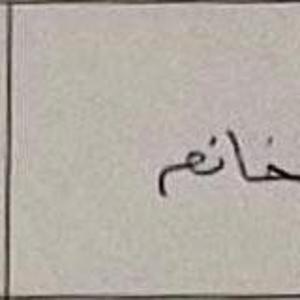 خانم